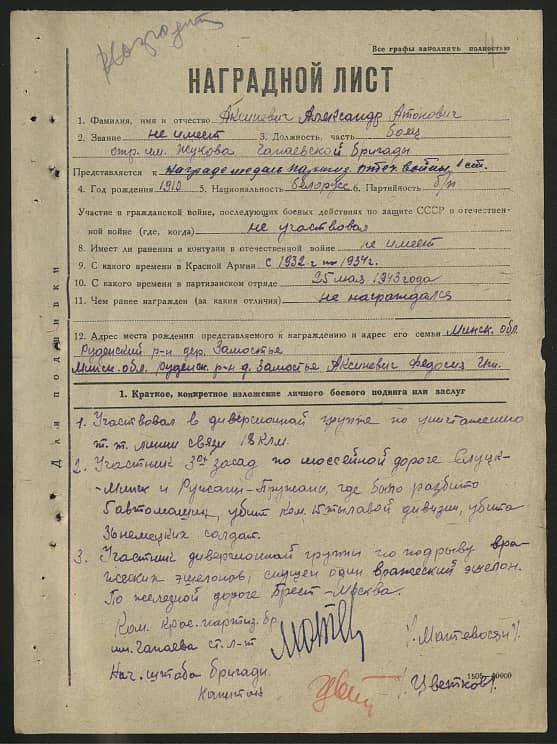 Все графы заполнять полностью
НАГРАДНОЙ ЛИСТ
1. Фамилия, имя и отчество Аксиневич Александр Атонович
2. Звание не имеет 3. Должность, часть боец
отр. им. Жукова Чапаевской бригады
Представляется к награде медаль партиз. отеч войны 1 ст.
4. Год рождения 1910 5. Национальность белорусс 6. Партийность б/п
Участие в гражданской войне, последующих боевых действиях по защите СССР в отечествен-
ной войне (где, когда) не участвовал
8. Имеет ли ранения и контузии в отечественной войне не имеет
9. С какого времени в Красной Армии с 1932 г по 1934г.
10. С какого времени в партизанском отряде 25 мая 1943 года
11. Чем ранее награжден (за какия отличия) не награждался
12. Адрес места рождения представляемого к награждению и адрес его семьи Минск. обл.
Руденский р-н дер. Замостье
Минск. обл. Руденск. р-н д. Замостье Аксиневич
Для подшивки
1. Краткое, конкретное изложение личного боевого подвига или заслуг
1. Участвовал в диверсионной группе по уничтожению
т.т. линии связи 18 клм.
2. Участник 3ох засад по шоссейной дороге Слуцк-
-Минск и Ружаны-Пружаны, где было разбито
6 автомашин, убит ком. тыловой дивизии, убито
немецких солдат.
3. Участник диверсионной группы по подрыву вра-
жеских эшелонов, спущен один вражеский эшелон.
По железной дороге Брест-Москва.
Ком. Крас. партиз. бр.
им. Чапаева ст. л-т /Матевосян/.
Нач. штаба бригады
Капитан /Цветков/.